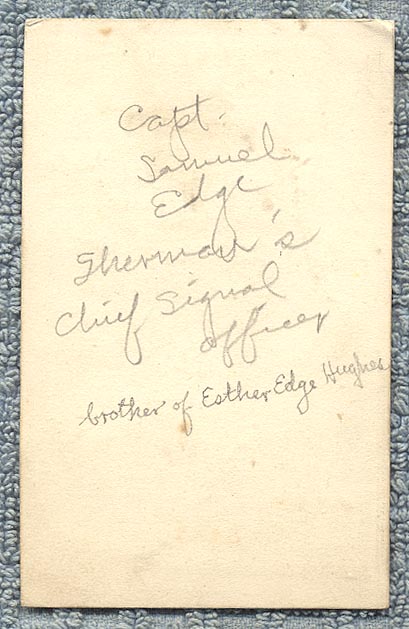 Capt.
Samuel
Edge
Sherman's
Chief Signal
Officer
brother of Esther Edge Hughes